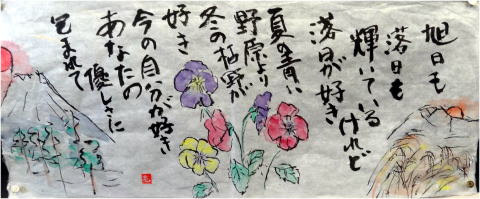 旭日も
落日も
輝いている
けれど
落日が好き
夏の青い
野原より
冬の枯野が
好き
今の自分が好き
あなたの
優しさに
包まれて